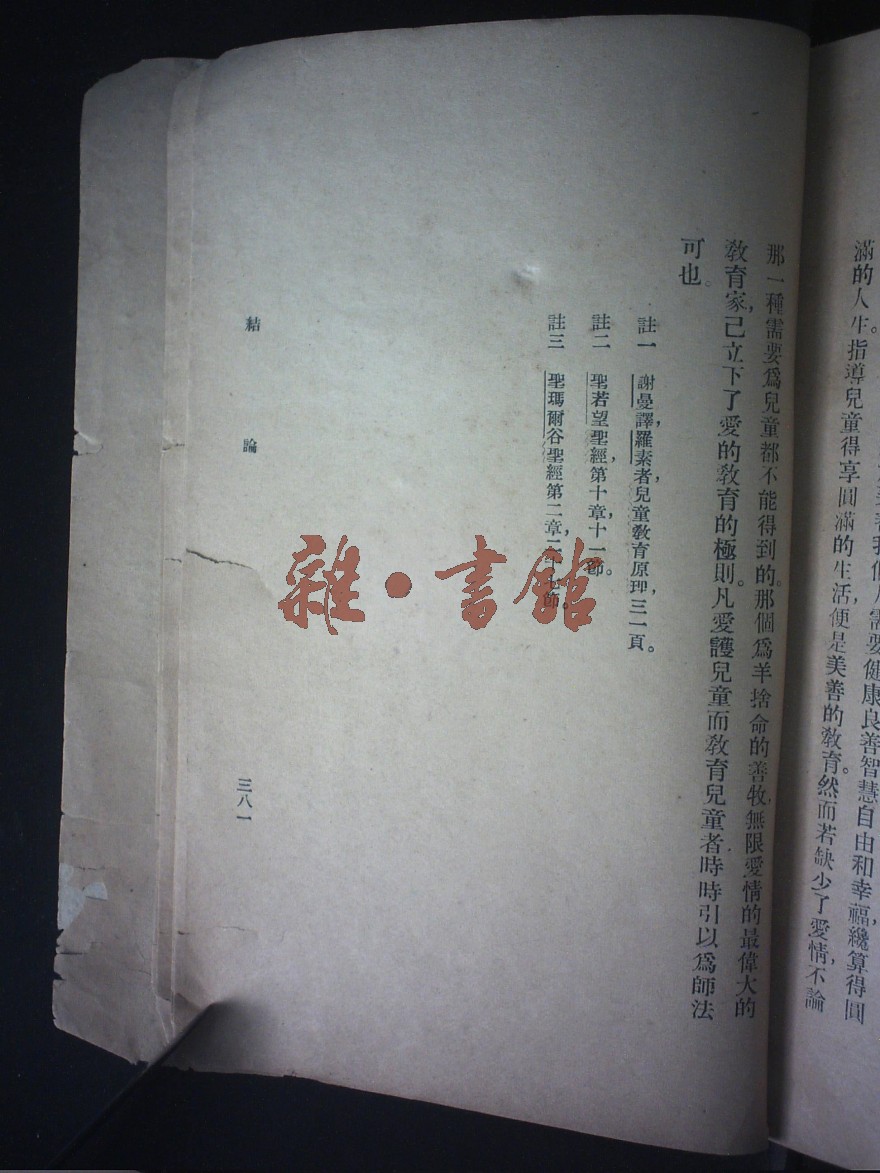 需要健康良善智慧自由和幸福,纔算得圓
滿的人生。指導兒童得享圓滿的生活,便是美善的教育。然而若缺少了愛情,不論
那一種需要爲兒童都不能得到的。那個爲羊捨命的善牧,無限愛情的最偉大的
敎育家,己立下了愛的敎育的極則。凡愛護兒童而敎育兒童者,時時引以爲師法
可也。
註一 謝曼譯,羅素者,兒童敎育原理,三一頁。
註二 聖若望聖經,第十章,十一節。
註三 聖瑪爾谷聖經第二章,二十七節。
結論
三八一
雜·書館